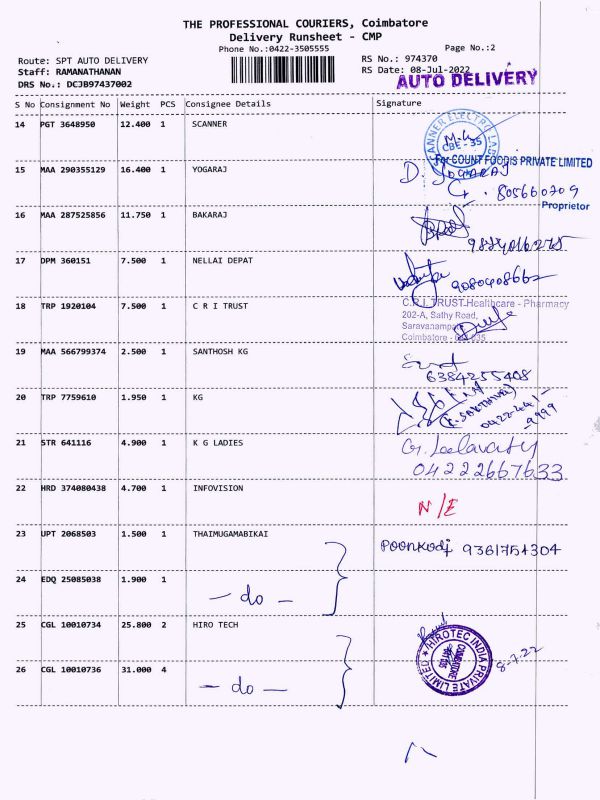 THE PROFESSIONAL COURIERS, Coimbatore
Delivery Runsheet - CMP
Phone No.:0422-3505555
Page No.:2
Route: SPT AUTO DELIVERY
RS No.: 974370
Staff: RAMANATHANAN
RS Date: 08-Jul-2022
DRS No.: DCJB97437002
AUTO DELIVERY
S No Consignment No Weight PCS Consignee Details Signature
14 PGT 3648950 12.400 1 SCANNER
CBE - 35
For COUNT FOODIS PRIVATE LIMITED
15 MAA 290355129 16.400 1 YOGARAJ
D. YOGARAJ
805660709
Proprietor
16 MAA 287525856 11.750 1 BAKARAJ
17 DPM 360151 7.500 1 NELLAI DEPAT
9080408662
18 TRP 1920104 7.500 1 C R I TRUST
C.R.I. TRUST-Healthcare - Pharmacy
202-A, Sathy Road,
Coimbatore
19 MAA 566799374 2.500 1 SANTHOSH KG
6384255408
20 TRP 7759610 1.950 1 KG
21 STR 641116 4.900 1 K G LADIES
G. Leelavathy
04222667633
22 HRD 374080438 4.700 1 INFOVISION
N/E
23 UPT 2068503 1.500 1 THAIMUGAMABIKAI
Poonkodi 9361754304
24 EDQ 25085038 1.900 1
- do -
25 CGL 10010734 25.800 2 HIRO TECH
HIROTEC INDIA PRIVATE LIMITED
8-7-22
26 CGL 10010736 31.000 4
- do -